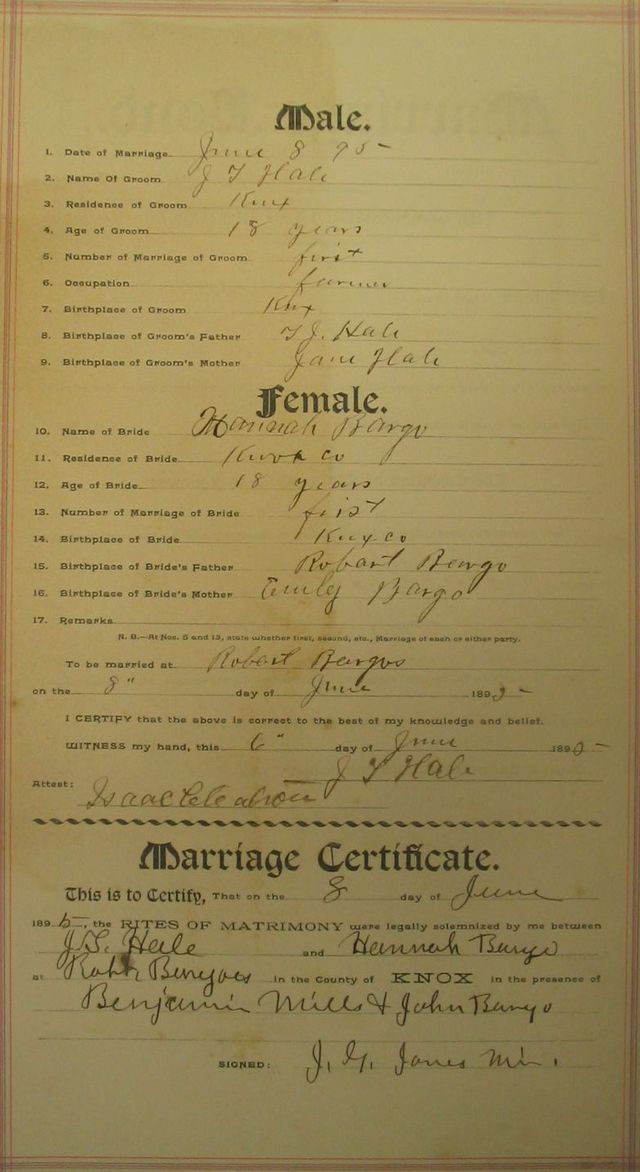 Male.
1. Date of Marriage June 8 95
2. Name Of Groom J T Hale
3. Residence of Groom Knx
4. Age of Groom 18 years
5. Number of Marriage of Groom first
6. Occupation farmer
7. Birthplace of Groom Knx
8. Birthplace of Groom's Father T J. Hale
9. Birthplace of Groom's Mother Jane Hale
Female.
10. Name of Bride Hannah Bargo
11. Residence of Bride Knox co
12. Age of Bride 18 years
13. Number of Marriage of Bride first
14. Birthplace of Bride Knx co
15. Birthplace of Bride's Father Robart Bargo
16. Birthplace of Bride's Mother Emily Bargo
17. Remarks
N. B.—At Nos. 5 and 13, state whether first, second, etc., Marriage of each or either party.
To be married at Robart Bargos
on the 8" day of June 1895
I CERTIFY that the above is correct to the best of my knowledge and belief.
WITNESS my hand, this 6" day of June 1895
J T Hale
Attest:
Isaac
Marriage Certificate.
This is to Certify, That on the 8 day of June
1895, the RITES OF MATRIMONY were legally solemnized by me between
J. T. Hale and Hannah Bargo
at in the County of KNOX in the presence of
Benjamin Mills & John Bargo
SIGNED: J. Jones Min.